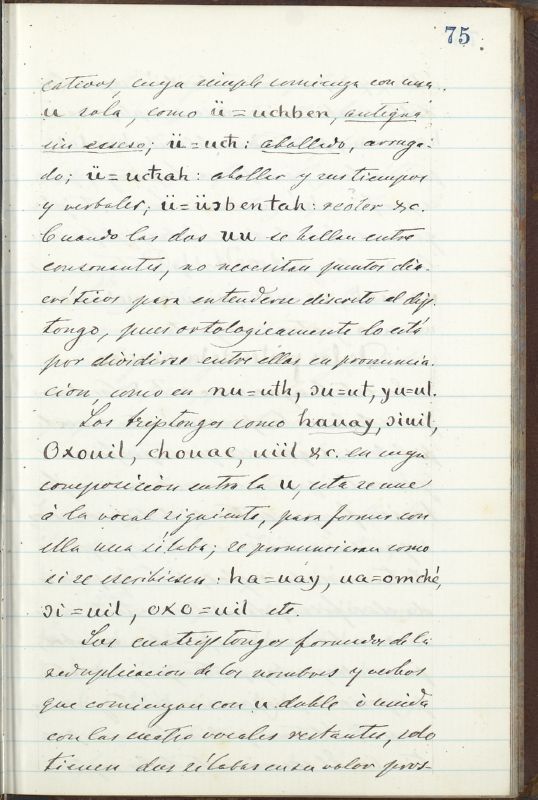 75
cateros, cuya simple comienza con una
u sola, como ü = uchben, antigua
sin eseso; ü = uch: abollido, arruga-
do; ü = uchah: abollar y sus tiempos
y verbales; ü = üɔbentah: &c.
Cuando las dos uu se hallan entre
consonantes, no necesitan puntos dia-
críticos para entenderse discreto el dip-
tongo, pues ortologicamente lo está
por dividirse entre ellas en pronuncia-
cion, como en nu=uth, ɔu=ut, yu=ul.
Los triptongos como hauay, ɔiuil,
Oxouil, chouac, uiil &c. en cuya
composicion entra la u, esta se une
á la vocal siguiente, para formar con
ella una sílaba; se pronuncian como
si se escribiesen: ha=uay, ua=omché,
ɔi=uil, oxo=uil etc.
Los cuatriptongos formados de la
reduplicacion de los nombres y verbos
que comienzan con u doble ó unida
con las cuatro vocales restantes, solo
tienen dos sílabas en su valor pros-